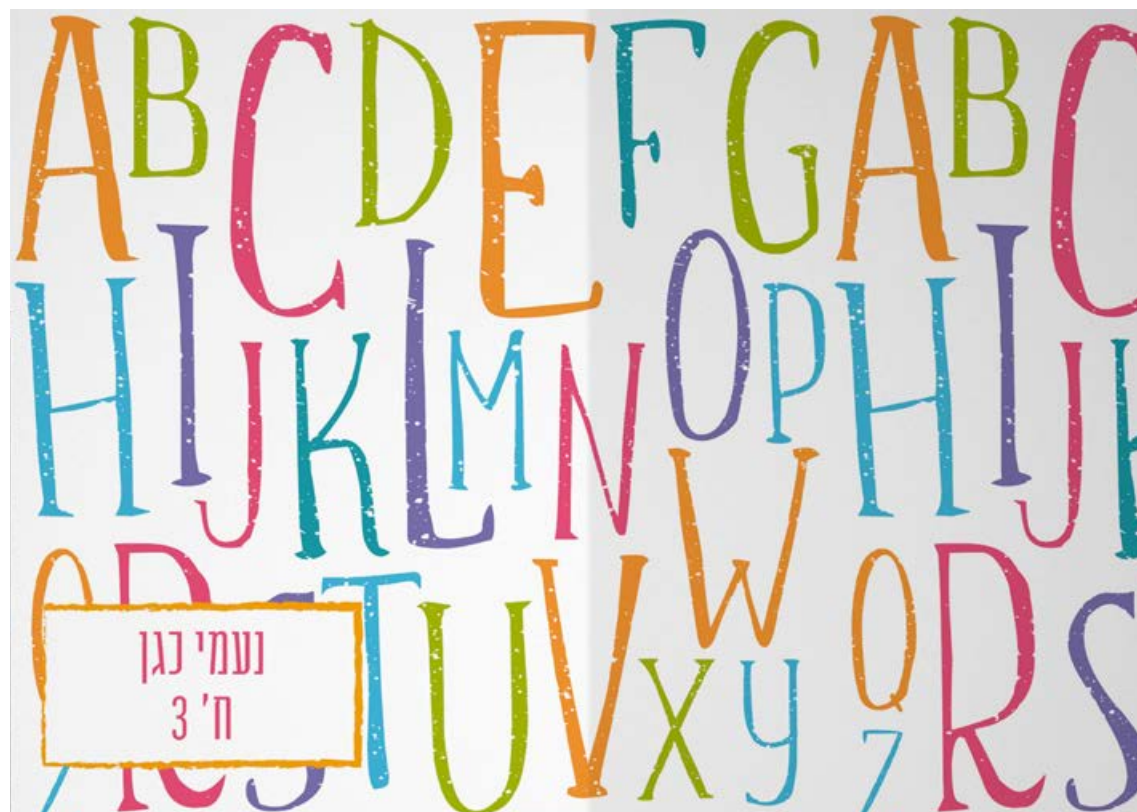 A B C D E F G A B C
H I J K L M N O P H I J K
Q R S T U V W X Y Q R S
Z Z
נעמי כגן
ח' 3